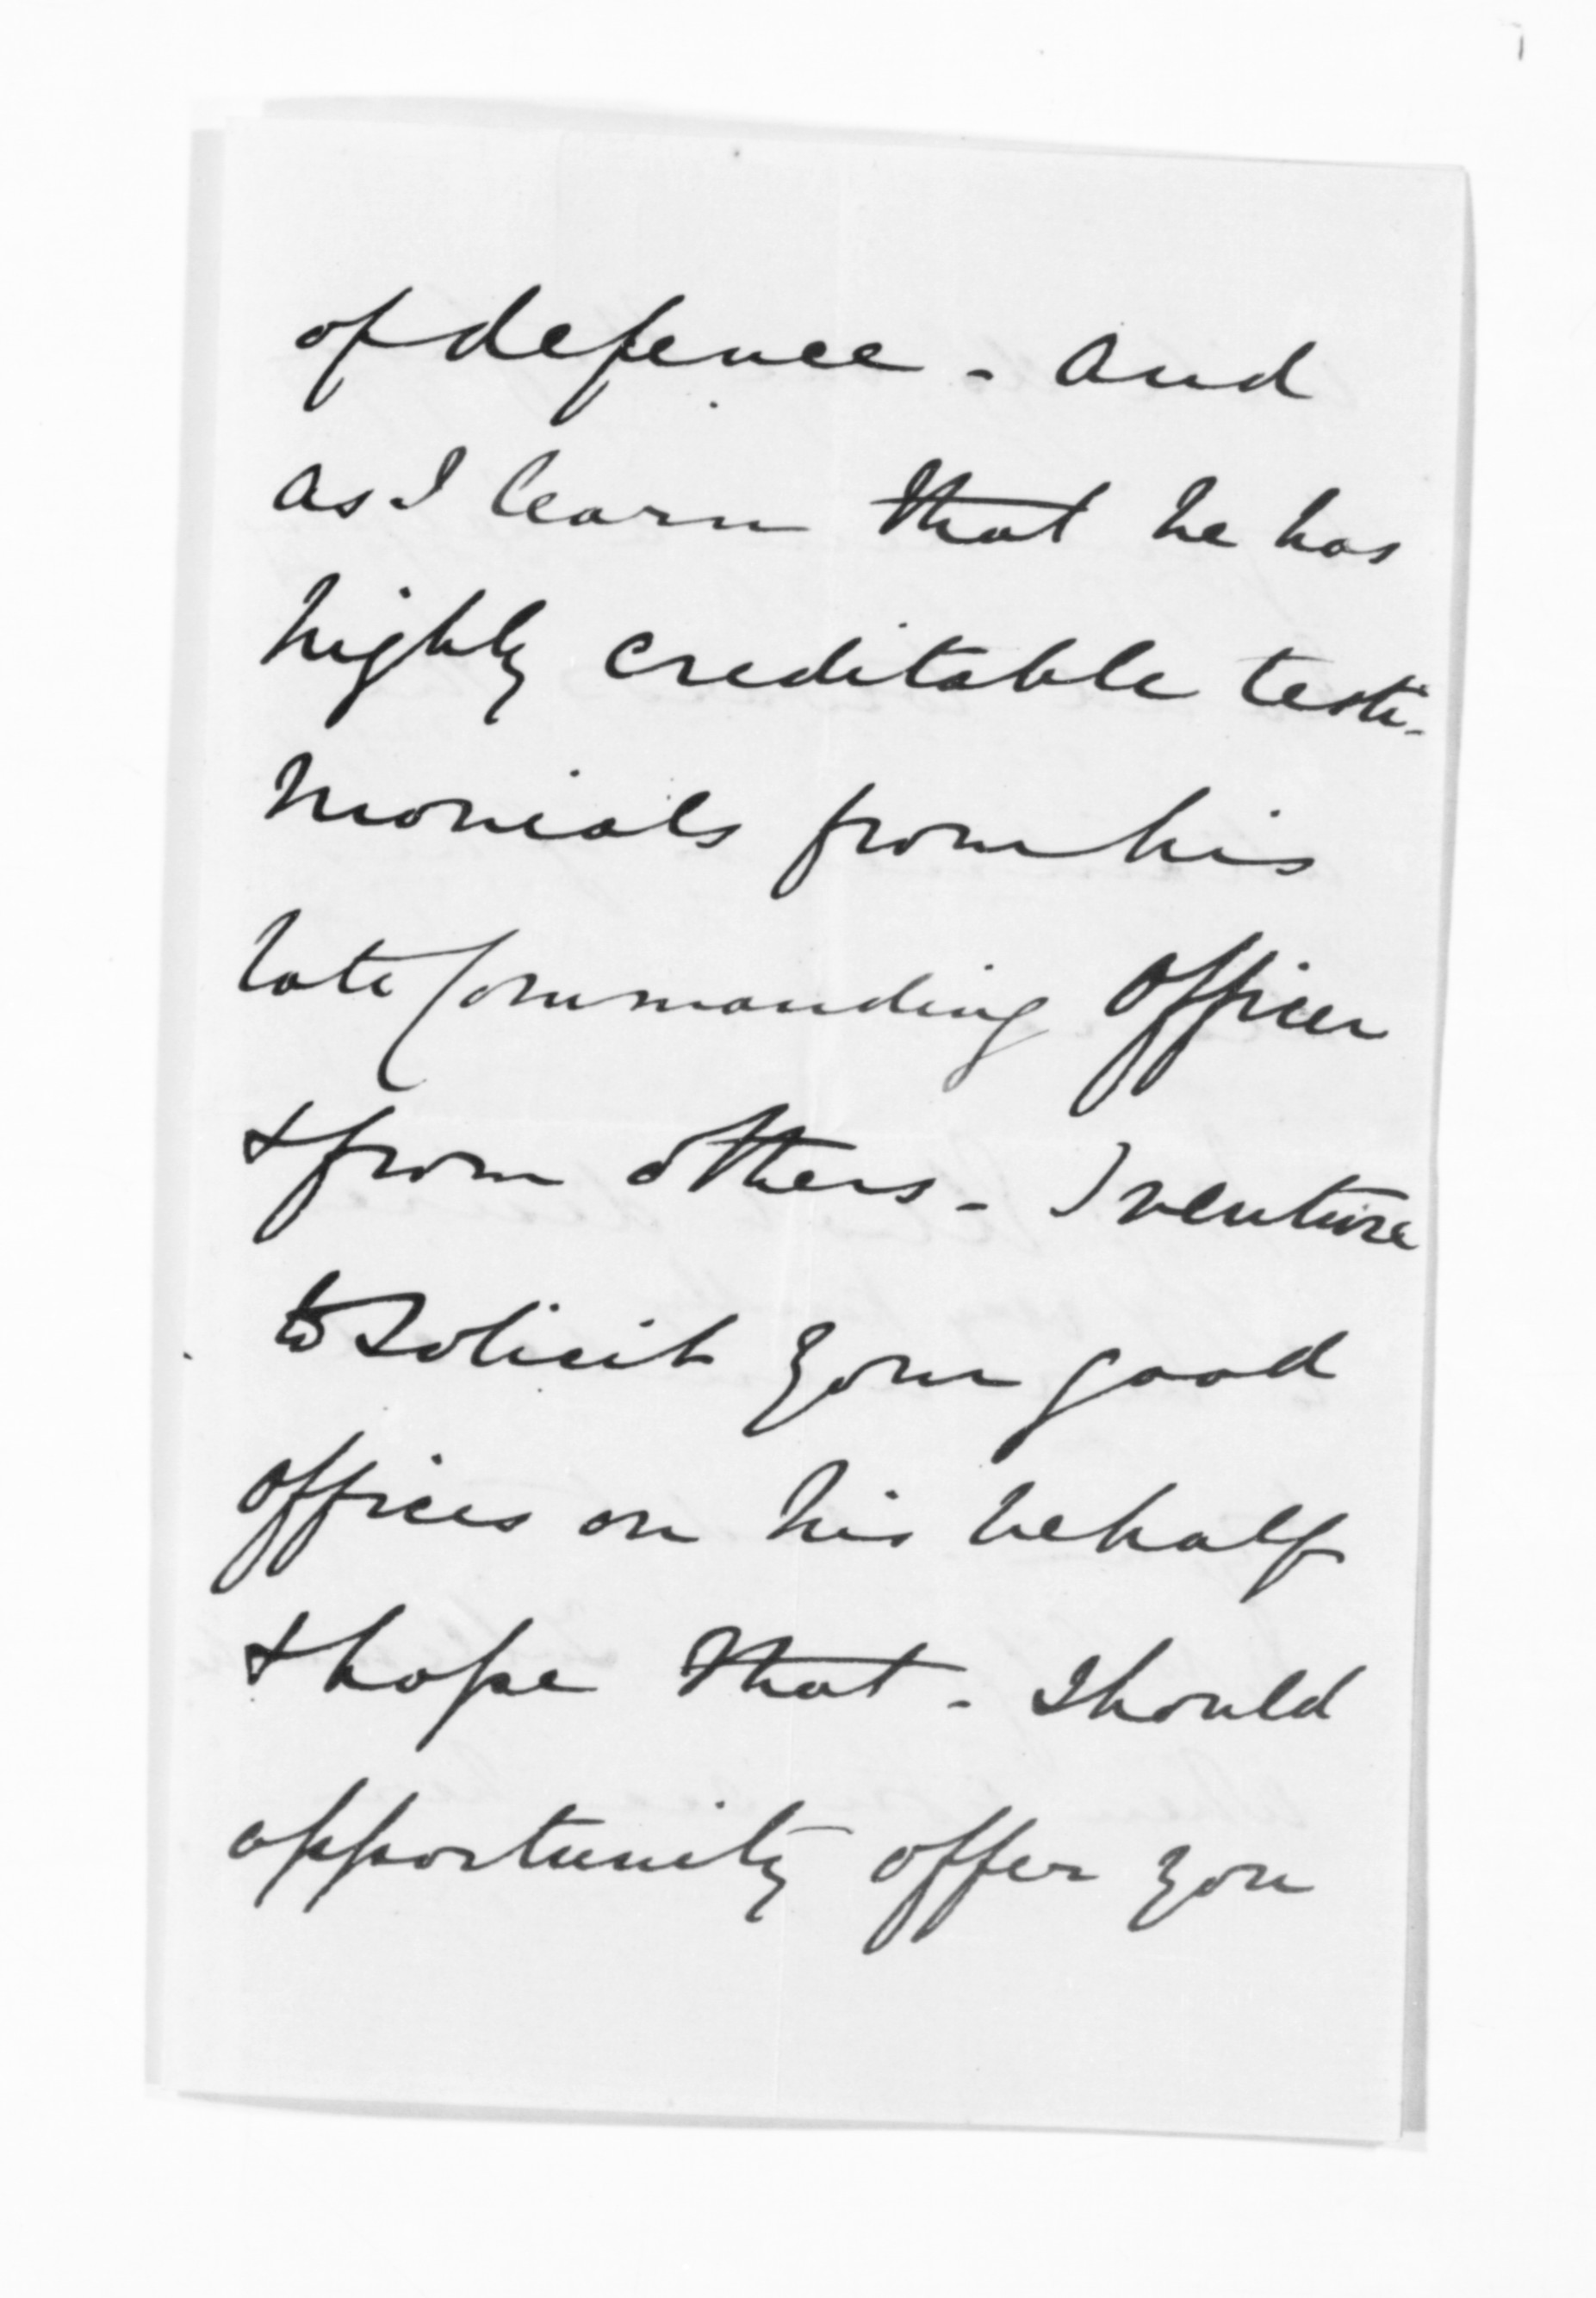 of defence - and
as I learn that he has
highly creditable testi-
monials from his
late Commanding Officer
& from others - I venture
to solicit your good
offices on his behalf
& hope that - should
opportunity offer you